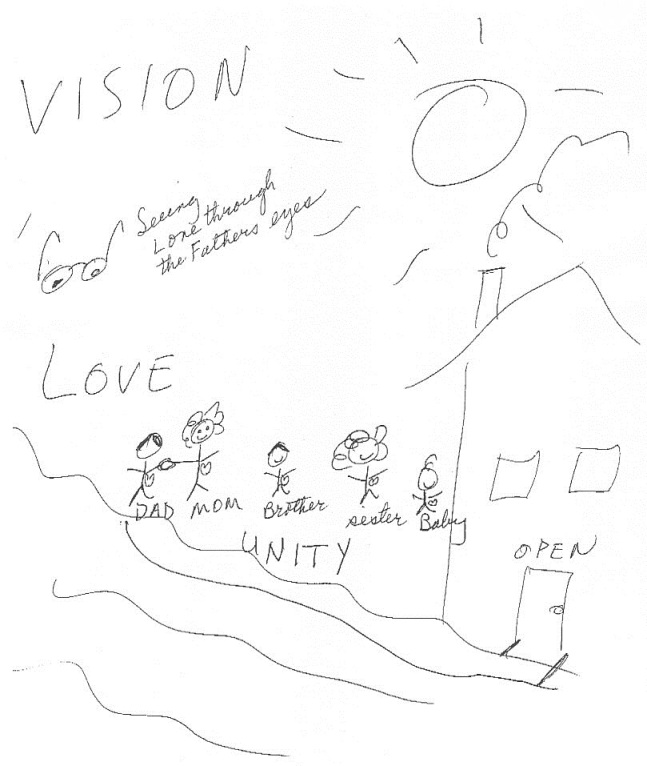 VISION
Seeing
Love through
the Fathers eyes
LOVE
DAD MOM Brother sister Baby
UNITY
OPEN